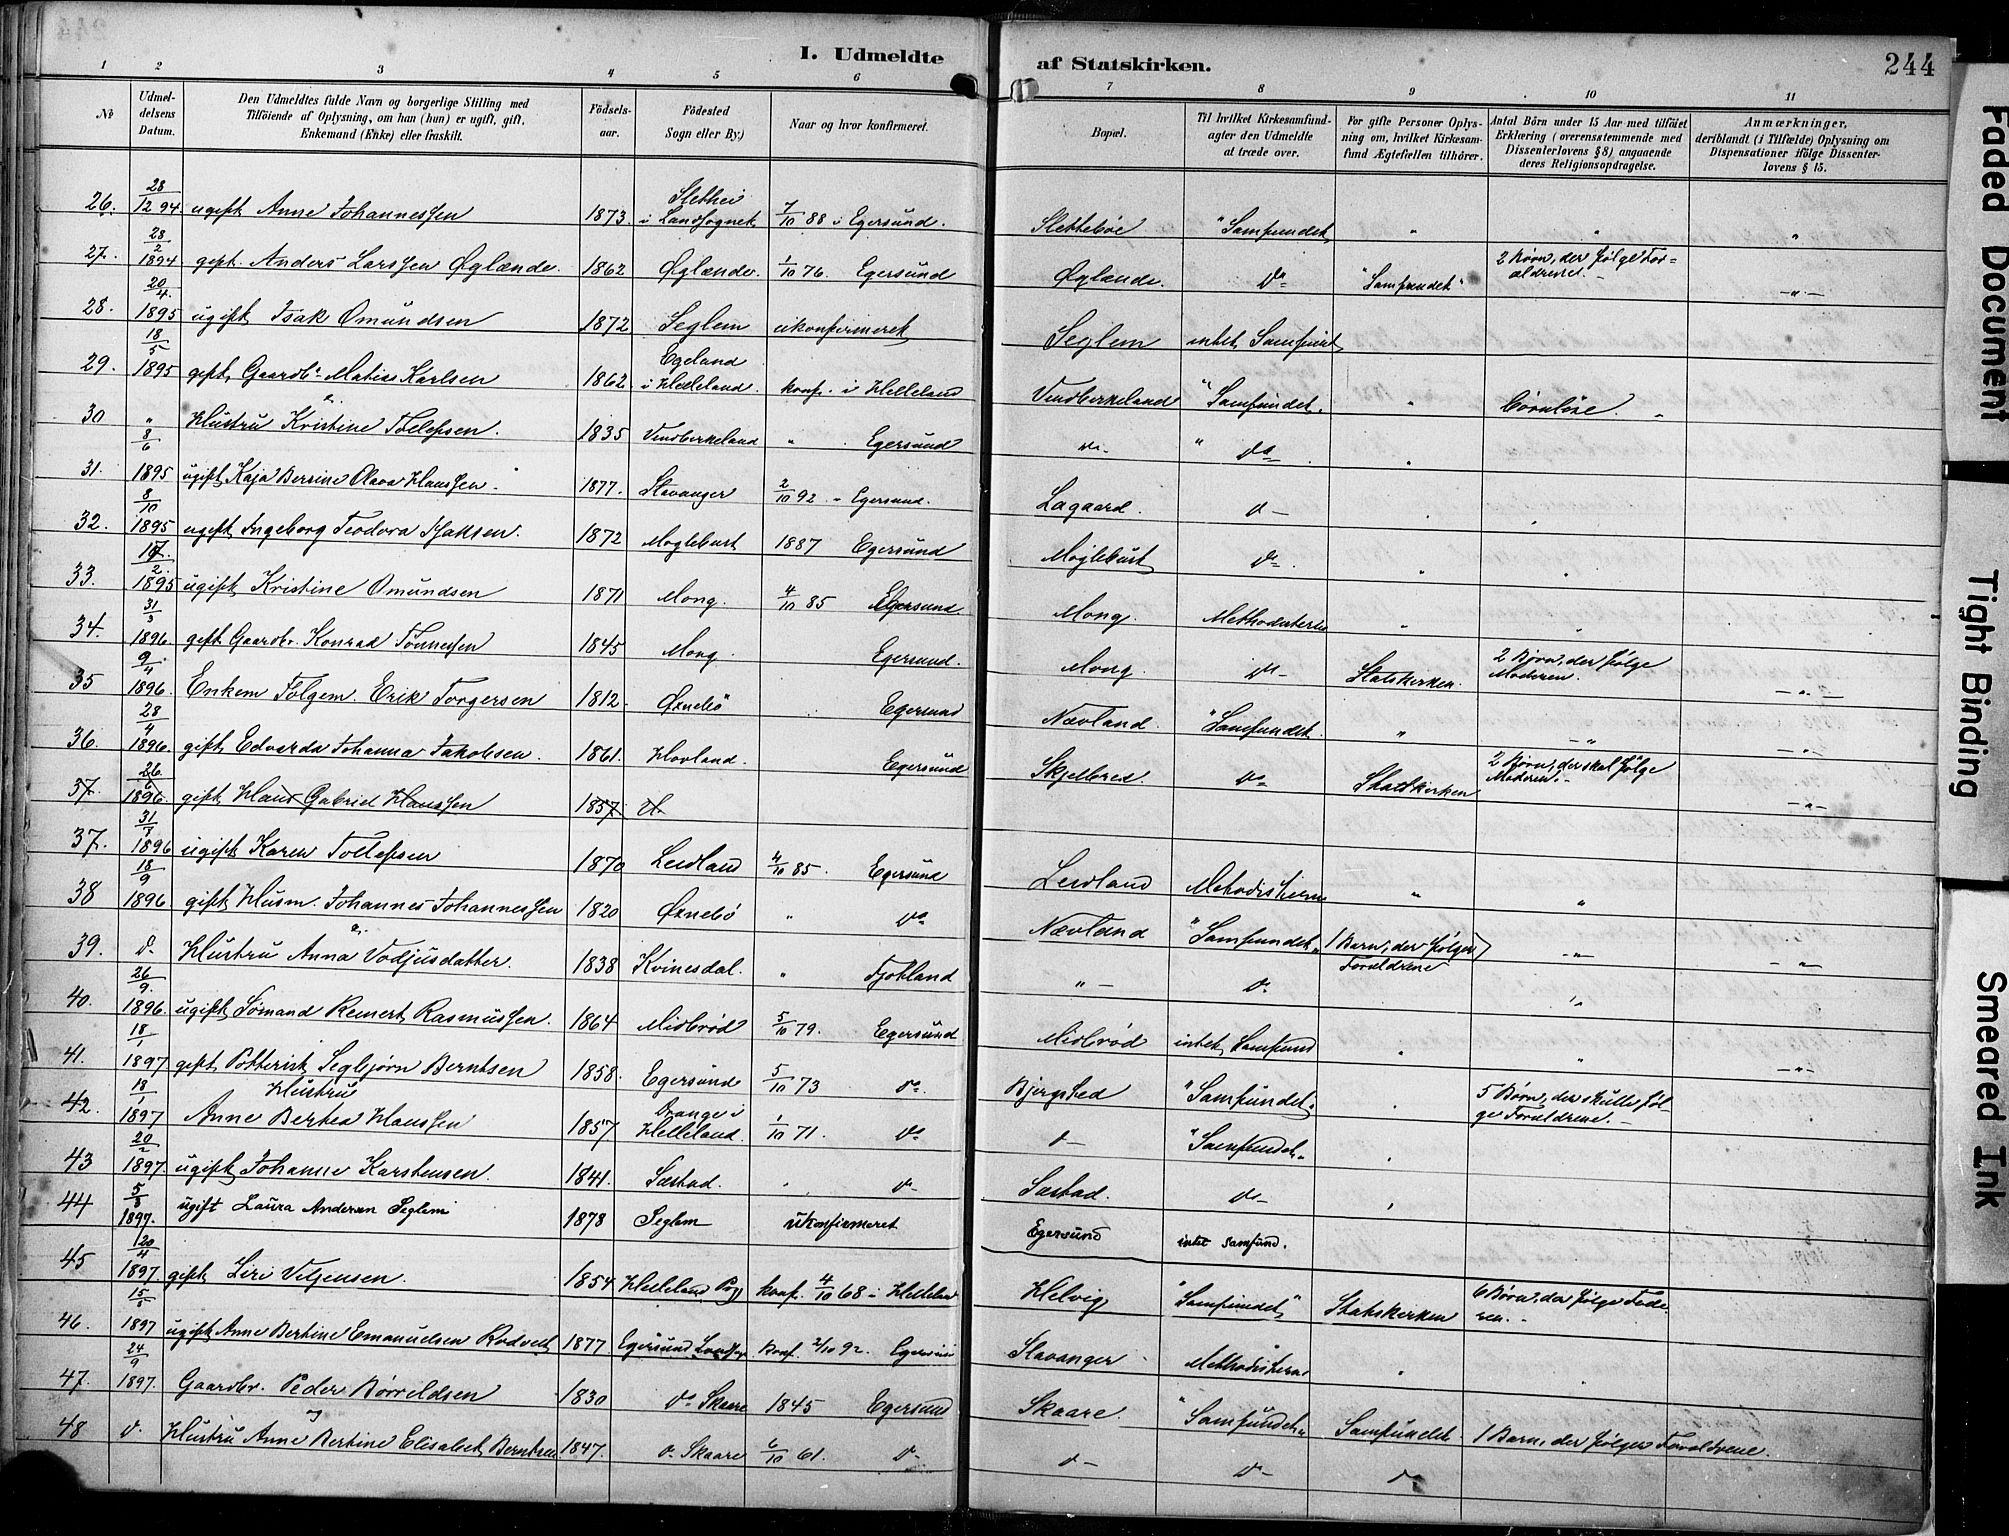 I. Udmeldte af Statskirken.
244
1 2 3 4 5 6 7 8 9 10 11
No
Udmeldelsens Datum.
Den Udmeldtes fulde Navn og borgerlige Stilling med Tilföiende af Oplysning, om han (hun) er ugift, gift, Enkemand (Enke) eller fraskilt.
Födselsaar.
Födested Sogn eller By.)
Naar og hvor konfirmeret.
Bopæl.
Til hvilket Kirkesamfund agter den Udmeldte at træde over.
For gifte Personer Oplysning om, hvilket Kirkesamfund Ægtefællen tilhörer.
Antal Börn under 15 Aar med tilföiet Erklæring (overensstemmende med Dissenterlovens § 8) angaaende deres Religionsopdragelse.
Anmærkninger, deriblandt (i Tilfælde) Oplysning om Dispensationer ifölge Dissenterlovens § 15.
26. 28/12 94 ugift Anne Johannessen 1873 i Landsognet 7/10 88 i Egersund. Slettebøe "Samfundet " " "
27. 28/2 1894 gift. Anders Larssen Øglænde. 1862 Øglænde. 1/10 76. Egersund Øglænde. do "Samfundet" 2 Børn, der følge Forældrene. – – " –
28. 20/4 1895 ugift Isak Omundsen 1872 Seglem ukonfirmeret Seglem intet Samfund
29. 18/5 1895 gift, Gaardbr. Matias Karlsen 1862 Egeland i Helleland. konf. i Helleland Vendberkeland "Samfundet. " børnløse.
30 " Hustru Kristine Tollefsen. 1835 Vendberkeland " Egersund do " do
31. 8/6 1895 ugift Kaja Berrine Olava Hanssen 1877. Stavanger 2/10 92 – Egersund. Lagaard. d –
32. 8/10 1895 ugift Ingeborg Teodora Isaksen. 1872 Moglebust 1887 Egersund Moglebust do
33. 1895 ugift Kristine Omundsen 1871 Mong. 4/10 85 Egersund Mong. Methodisterne " "
34. 31/3 1896. gift Gaardbr. Konrad Tønnesen 1845 Mong. Egersund. Mong. do Statskirken. 2 Børn, der følge Moderen. – " –
35 9/4 1896. Enkem Folgem. Erik Torgersen 1812 Øxnebö Egersund Nævland. "Samfundet. " – " – " –
36. 28/4 1896. gift Edvarda Johanna Jakobsen. 1861. Hovland. Egersund Skjelbred. do Statskirken 2 Børn, der skal følge Moderen. – – " –
37. 26/6 1896 gift Hans Gabriel Hanssen 1857
37. 31/7 1896 ugift Karen Tollefsen 1870 Leidland 4/10 85. Egersund Leidland Methodisterne " "
38 18/9 1896 gift Husm. Johannes Johannessen 1820 Øxnebö " do Nævland "Samfundet" 1 Barn, der følger Forældrene – " – " –
39. d. Hustru Anna Vodjusdatter. 1838 Kvinesdal. " Fjotland " – do "
40. 26/9. 1896. ugift Sømand Reinert Rasmussen. 1864 Midbrød 5/10 79. Egersund Midbrød intet Samfund " " – " –
41. 18/1 1897 gift Potterist Segbjørn Berntsen 1858. Egersund 5/10 73 do Bjergsted "Samfundet. 5 Børn, der skulle følge Forældrene. –
42. 18/1 1897 Hustru Anne Bertea Hanssen 1857 Drange i Helleland. 1/10 71. do d – "Samfundet.
43 20/2 1897 ugift Johanne Karstensen. 1841. Sæstad. " d – Sæstad. do –
44 5/3 1897. ugift Laura Andersen Seglem 1878 Seglem ukonfirmeret Egersund intet samfund.
45 20/4 1897 gift Siri Veljensen. 1854 Helleland konf. 4/10 68 i Helleland Helvig "Samfundet" Statskirken 6 Børn, der følge Faderen. –
46. 1897 ugift Anne Bertine Emanuelsen Rodvelt 1877 Egersund Landsogn konf. 2/10 92. Egersund Stavanger Methodisterne "
47. 24/9 1897. Gaardbr. Peder Børreldsen 1830 do Skaare 1845 Egersund Skaare. "Samfundet" Samfundet 1 Barn, der følger Forældrene.
48 d. Hustru Anne Bertine Elisabet Berntsen 1847. do Skaare 6/10 61. do d – do – do
Faded Document
Tight Binding
Smeared Ink